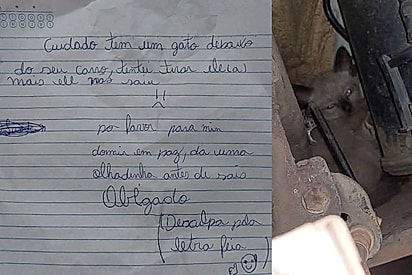 Cuidado tem um gato debaixo
do seu carro, tentei tirar ele(a)
mais ele nao saiu
!!
por favor para min
domir em paz, da uma
olhadinha antes de sair
Obrigado
(Desculpa pela
letra feia)